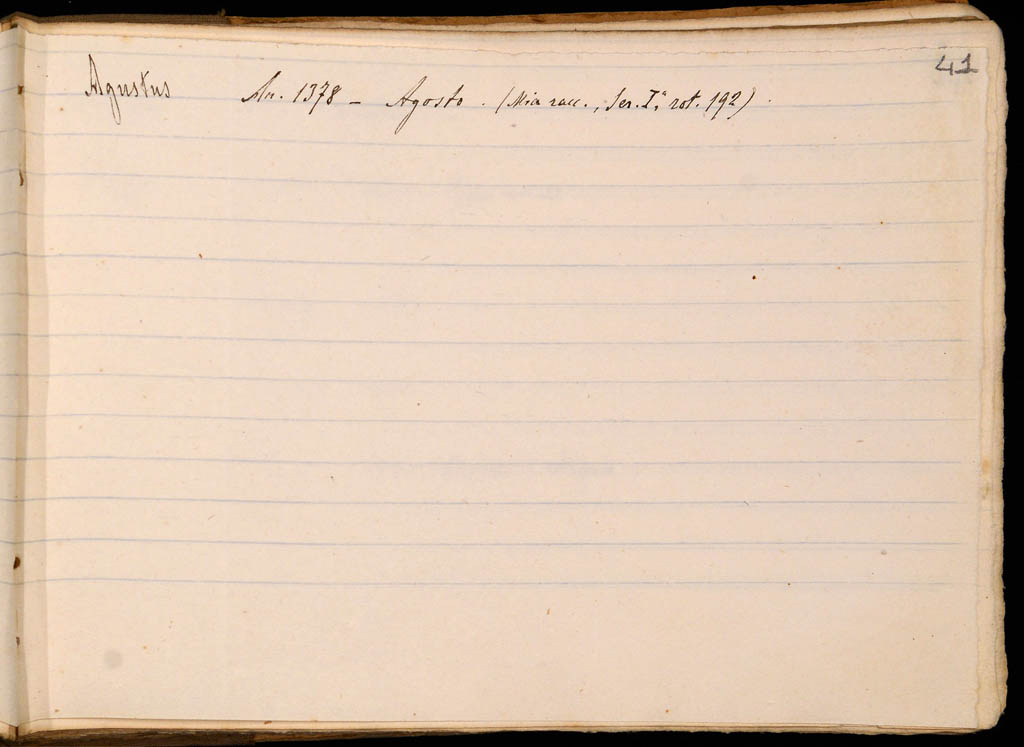 41
Agustus An. 1378 - Agosto. (Mia racc., Ser. Iª, rot. 192).